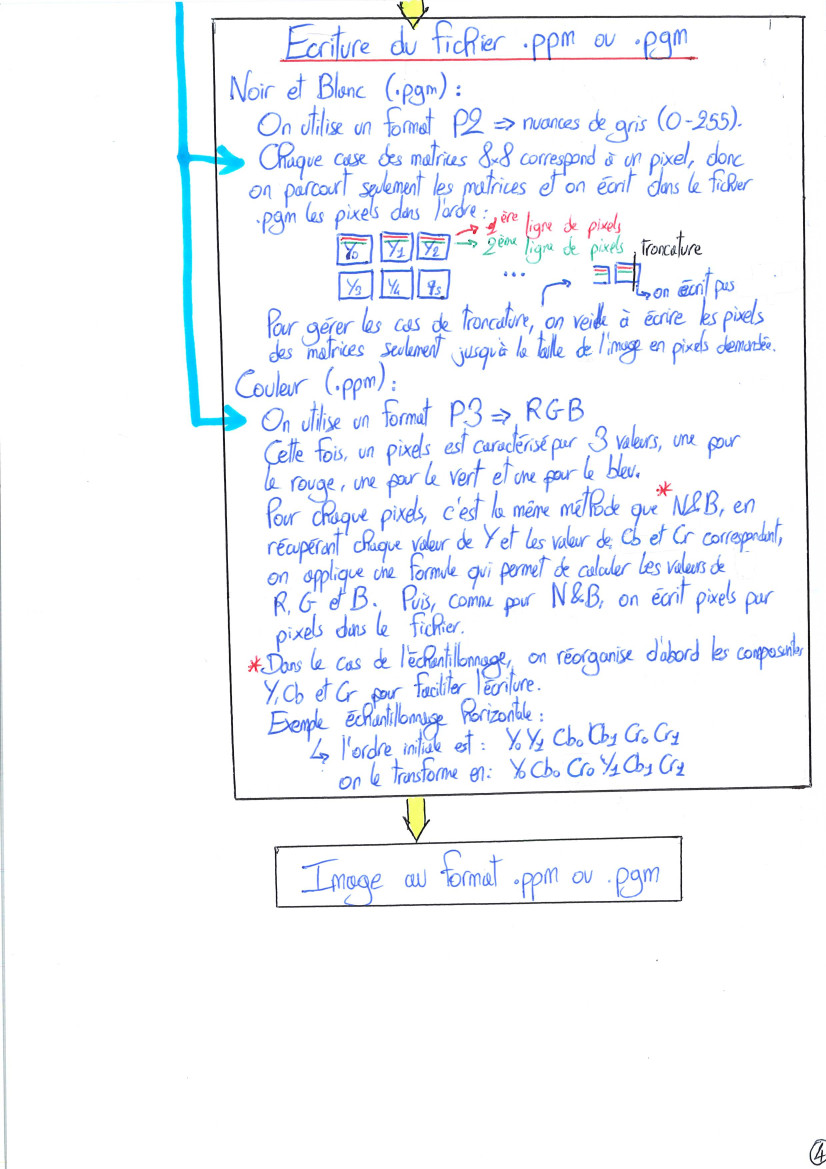 Ecriture du fichier .ppm ou .pgm
Noir et Blanc (.pgm) :
On utilise un format P2 => nuances de gris (0-255).
Chaque case des matrices 8x8 correspond à un pixel, donc
on parcourt seulement les matrices et on écrit dans le fichier
.pgm les pixels dans l'ordre :
1ère ligne de pixels
2ème ligne de pixels
troncature
Y0 Y1 Y2
Y3 Y4 95
...
on écrit pas
Pour gérer les cas de troncature, on veille à écrire les pixels
des matrices seulement jusqu'à la taille de l'image en pixels demandée.
Couleur (.ppm) :
On utilise un format P3 => RGB
Cette fois, un pixels est caractérisé par 3 valeurs, une pour
le rouge, une pour le vert et une pour le bleu.
Pour chaque pixels, c'est la même méthode que * N&B, en
récupérant chaque valeur de Y et les valeur de Cb et Cr correspondant,
on applique une formule qui permet de calculer les valeurs de
R, G et B. Puis, comme pour N&B, on écrit pixels par
pixels dans le fichier.
* Dans le cas de l'échantillonnage, on réorganise d'abord les composantes
Y, Cb et Cr pour faciliter l'écriture.
Exemple échantillonnage horizontale :
↳ l'ordre initiale est : Y0 Y1 Cb0 Cb1 Cr0 Cr1
on le transforme en : Y0 Cb0 Cr0 Y1 Cb1 Cr1
Image au format .ppm ou .pgm
4